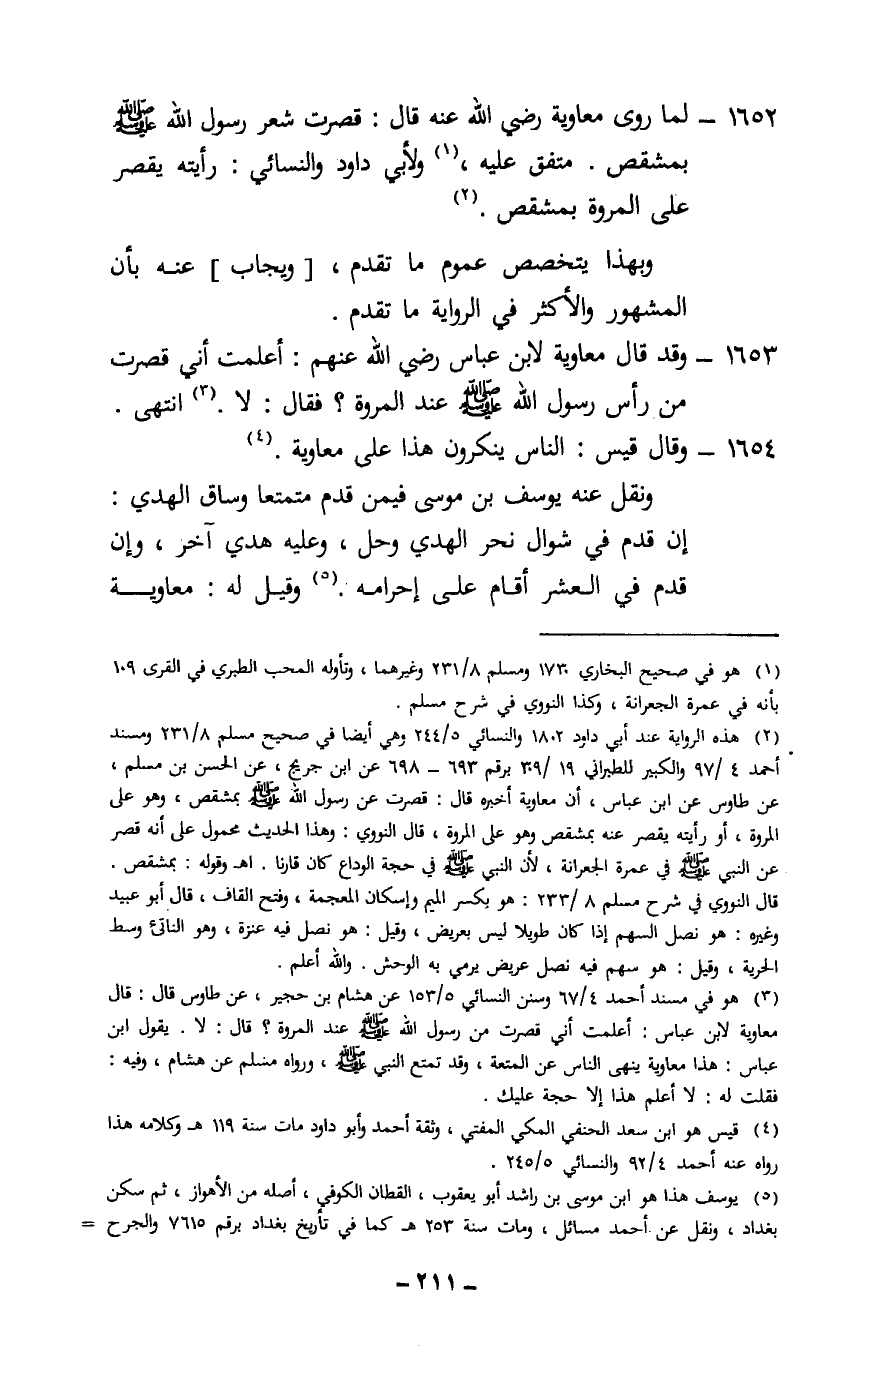 ١٦٥٢ ـ لما روى معاوية رضي الله عنه قال : قصرت شعر رسول الله ﷺ
بمشقص . متفق عليه ،(١) ولأبي داود والنسائي : رأيته يقصر
على المروة بمشقص .(٢)
وبهذا يتخصص عموم ما تقدم ، [ ويجاب ] عنه بأن
المشهور والأكثر في الرواية ما تقدم .
١٦٥٣ ـ وقد قال معاوية لابن عباس رضي الله عنهم : أعلمت أني قصرت
من رأس رسول الله ﷺ عند المروة ؟ فقال : لا .(٣) انتهى .
١٦٥٤ ـ وقال قيس : الناس ينكرون هذا على معاوية .(٤)
ونقل عنه يوسف بن موسى فيمن قدم متمتعا وساق الهدي :
إن قدم في شوال نحر الهدي وحل ، وعليه هدي آخر ، وإن
قدم في العشر أقام على إحرامه .(٥) وقيل له : معاوية
(١) هو في صحيح البخاري ١٧٣٠ ومسلم ٢٣١/٨ وغيرهما ، وتأوله المحب الطبري في القرى ١٠٩
بأنه في عمرة الجعرانة ، وكذا النووي في شرح مسلم .
(٢) هذه الرواية عند أبي داود ١٨٠٢ والنسائي ٢٤٤/٥ وهي أيضا في صحيح مسلم ٢٣١/٨ ومسند
أحمد ٤ /٩٧ والكبير للطبراني ١٩ /٣٠٩ برقم ٦٩٣ – ٦٩٨ عن ابن جريج ، عن الحسن بن مسلم ،
عن طاوس عن ابن عباس ، أن معاوية أخبره قال : قصرت عن رسول الله ﷺ بمشقص ، وهو على
المروة ، أو رأيته يقصر عنه بمشقص وهو على المروة ، قال النووي : وهذا الحديث محمول على أنه قصر
عن النبي ﷺ في عمرة الجعرانة ، لأن النبي ﷺ في حجة الوداع كان قارنا . اهـ وقوله : بمشقص .
قال النووي في شرح مسلم ٨ /٢٣٣ : هو بكسر الميم وإسكان المعجمة ، وفتح القاف ، قال أبو عبيد
وغيره : هو نصل السهم إذا كان طويلا ليس بعريض ، وقيل : هو نصل فيه عنزة ، وهو الناتئ وسط
الحربة ، وقيل : هو سهم فيه نصل عريض يرمي به الوحش . والله أعلم .
(٣) هو في مسند أحمد ٦٧/٤ وسنن النسائي ١٥٣/٥ عن هشام بن حجير ، عن طاوس قال : قال
معاوية لابن عباس : أعلمت أني قصرت من رسول الله ﷺ عند المروة ؟ قال : لا . يقول ابن
عباس : هذا معاوية ينهى الناس عن المتعة ، وقد تمتع النبي ﷺ ، ورواه مسلم عن هشام ، وفيه :
فقلت له : لا أعلم هذا إلا حجة عليك .
(٤) قيس هو ابن سعد الحنفي المكي المفتي ، وثقة أحمد وأبو داود مات سنة ١١٩ هـ وكلامه هذا
رواه عنه أحمد ٩٢/٤ والنسائي ٢٤٥/٥ .
(٥) يوسف هذا هو ابن موسى بن راشد أبو يعقوب ، القطان الكوفي ، أصله من الأهواز ، ثم سكن
بغداد ، ونقل عن أحمد مسائل ، ومات سنة ٢٥٣ هـ كما في تأريخ بغداد برقم ٧٦١٥ والجرح =
ـ ٢١١ ـ